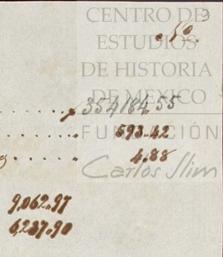 CENTRO DE
ESTUDIOS
DE HISTORIA
DE MEXICO
354184.55
593.42
FUNDACIÓN
4.88
Carlos Slim
9,062.97
6,237.90